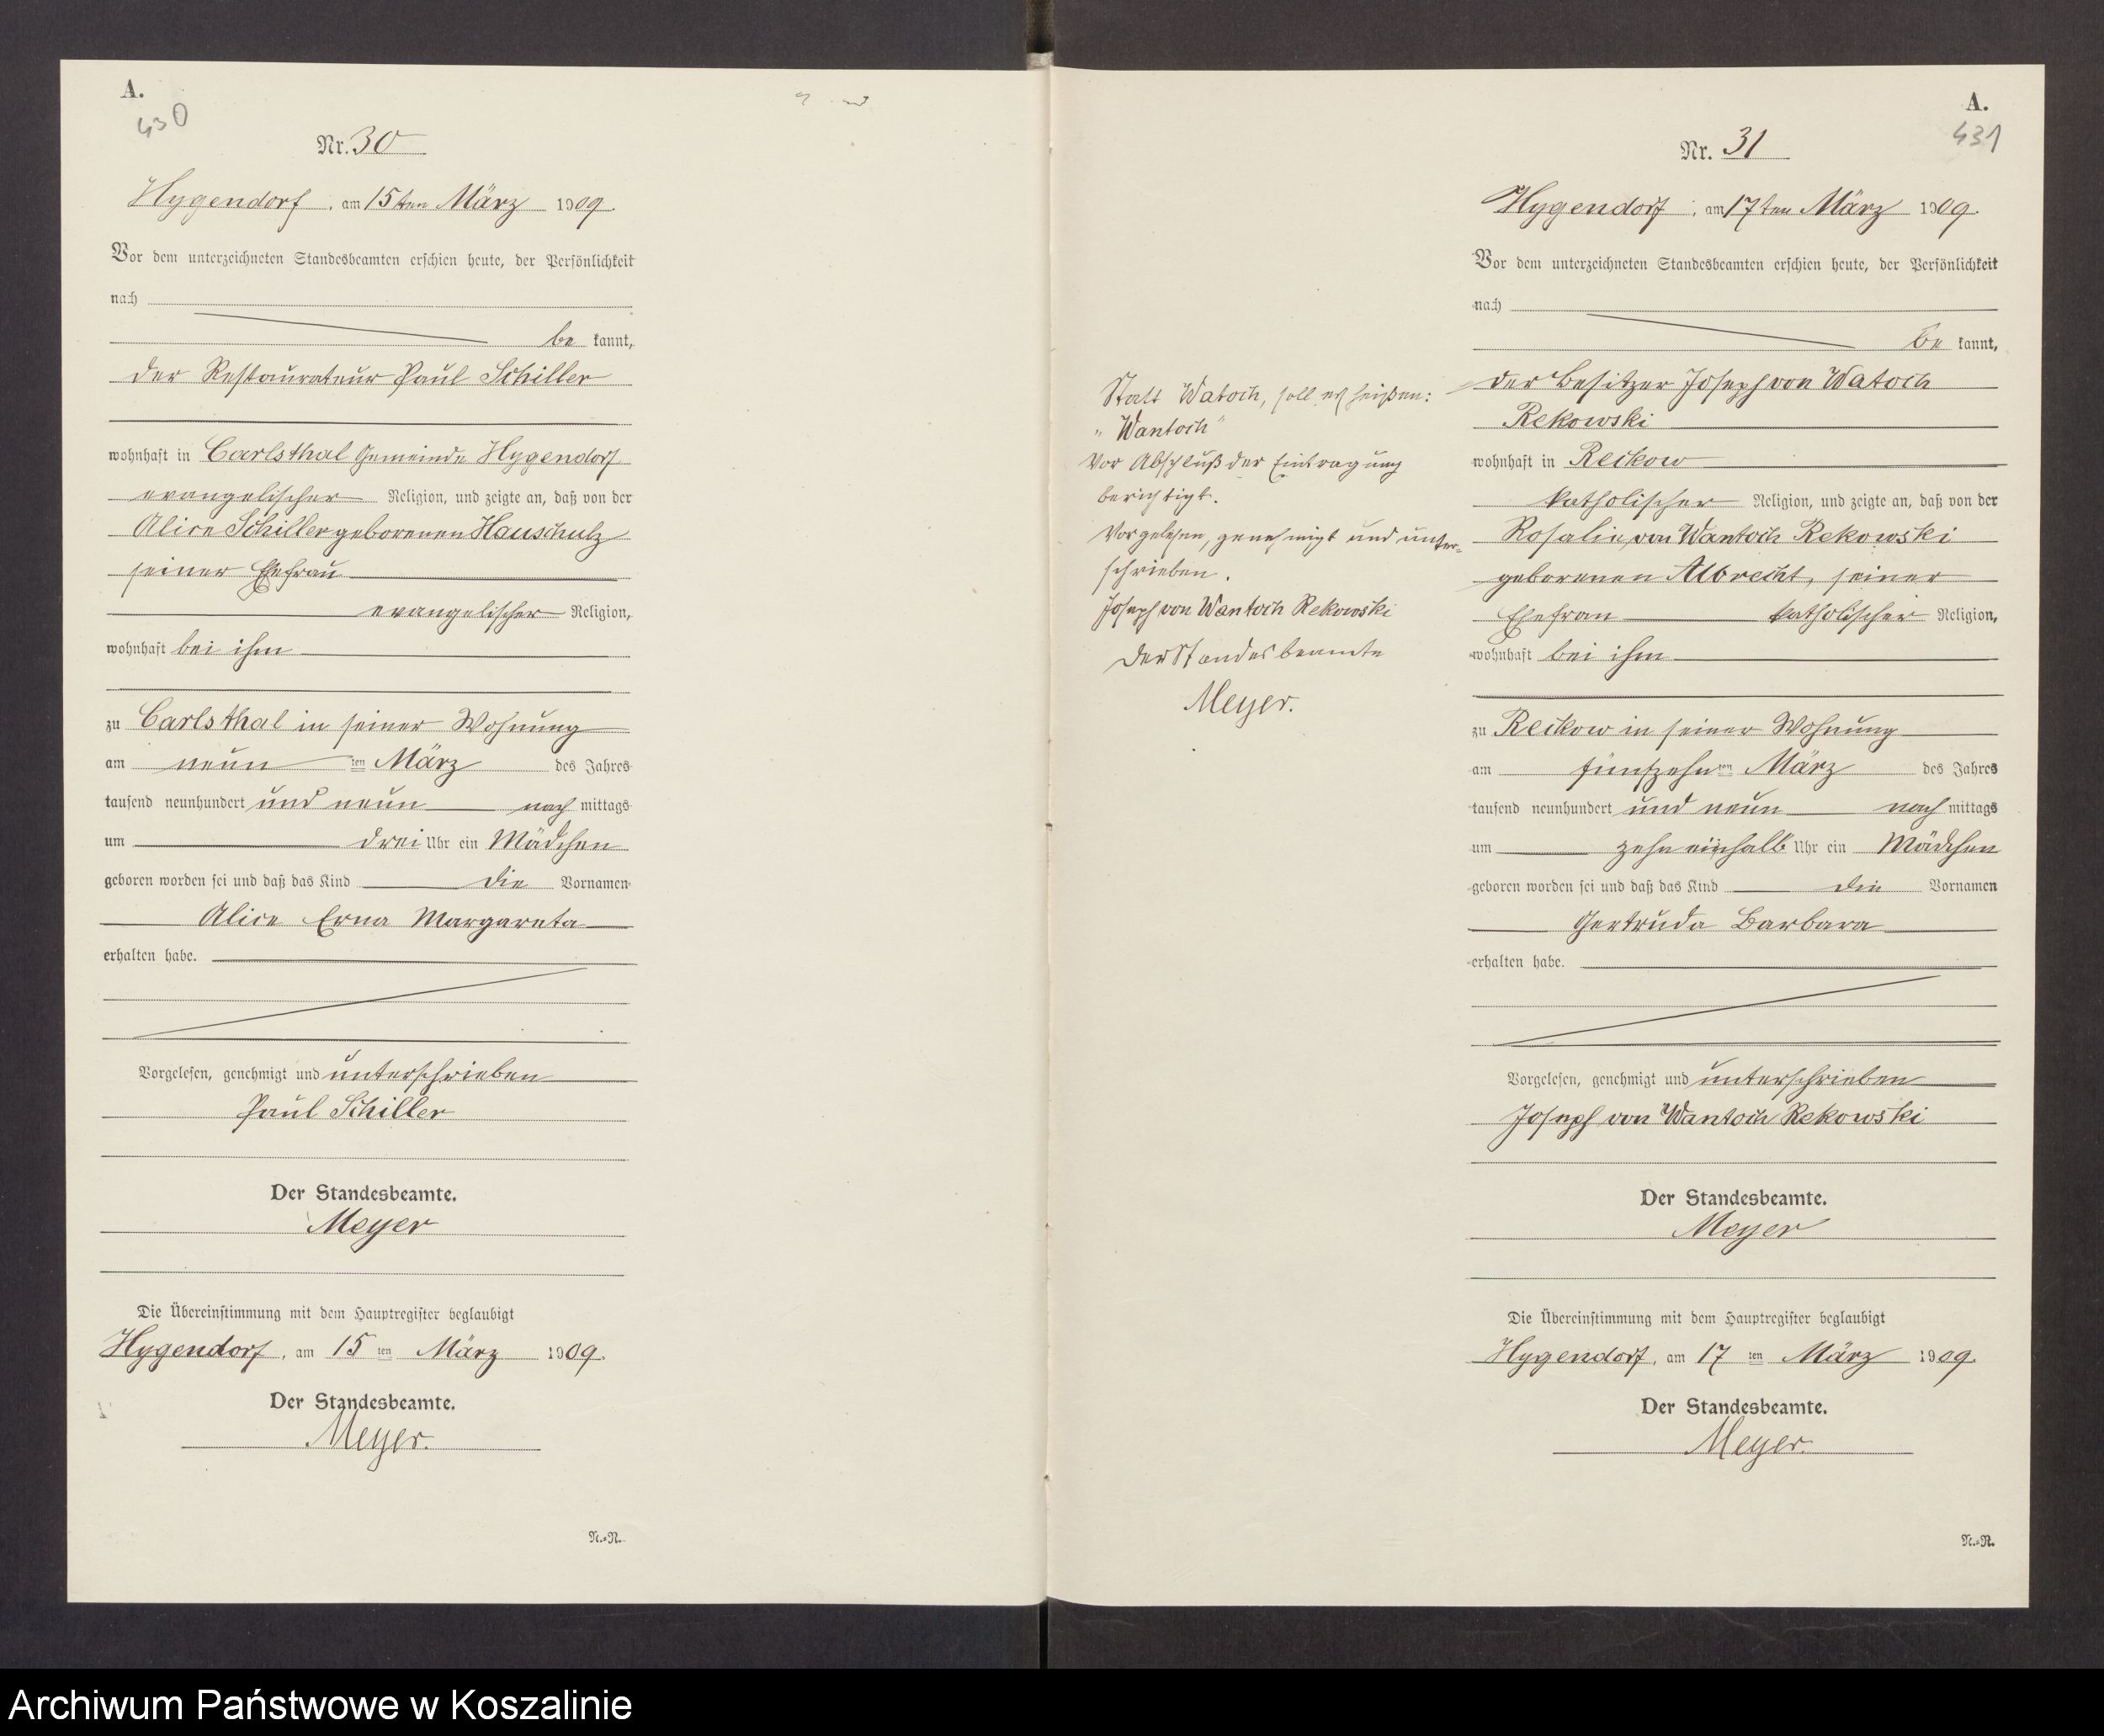 A.
430
Nr. 30
Hygendorf, am 15ten März 1909.
Vor dem unterzeichneten Standesbeamten erschien heute, der Persönlichkeit
nach
be kannt,
der Restaurateur Paul Schiller
wohnhaft in Carlsthal Gemeinde Hygendorf
evangelischer Religion, und zeigte an, daß von der
Alice Schiller geborenen Hauschulz
seiner Ehefrau
evangelischer Religion,
wohnhaft bei ihm
zu Carlsthal in seiner Wohnung
am neun ten März des Jahres
tausend neunhundert und neun nach mittags
um drei Uhr ein Mädchen
geboren worden sei und daß das Kind die Vornamen
Alice Erna Margareta
erhalten habe.
Vorgelesen, genehmigt und unterschrieben
Paul Schiller
Der Standesbeamte.
Meyer
Die Übereinstimmung mit dem Hauptregister beglaubigt
Hygendorf, am 15 ten März 1909.
Der Standesbeamte.
Meyer.
N.=R.
Statt Watoch, soll es heißen:
"Wantoch"
Vor Abschluß der Eintragung
berichtigt.
Vorgelesen, genehmigt und unter-
schrieben.
Joseph von Wantoch Rekowski
Der Standesbeamte
Meyer.
A.
431
Nr. 31
Hygendorf, am 17ten März 1909.
Vor dem unterzeichneten Standesbeamten erschien heute, der Persönlichkeit
nach
be kannt,
der Besitzer Joseph von Watoch
Rekowski
wohnhaft in Reckow
katholischer Religion, und zeigte an, daß von der
Rosalie von Wantoch Rekowski
geborenen Albrecht, seiner
Ehefrau katholischer Religion,
wohnhaft bei ihm
zu Reckow in seiner Wohnung
am fünfzehn ten März des Jahres
tausend neunhundert und neun nach mittags
um zehn einhalb Uhr ein Mädchen
geboren worden sei und daß das Kind die Vornamen
Gertruda Barbara
erhalten habe.
Vorgelesen, genehmigt und unterschrieben
Joseph von Wantoch Rekowski
Der Standesbeamte.
Meyer
Die Übereinstimmung mit dem Hauptregister beglaubigt
Hygendorf, am 17 ten März 1909.
Der Standesbeamte.
Meyer.
N.=R.
Archiwum Państwowe w Koszalinie